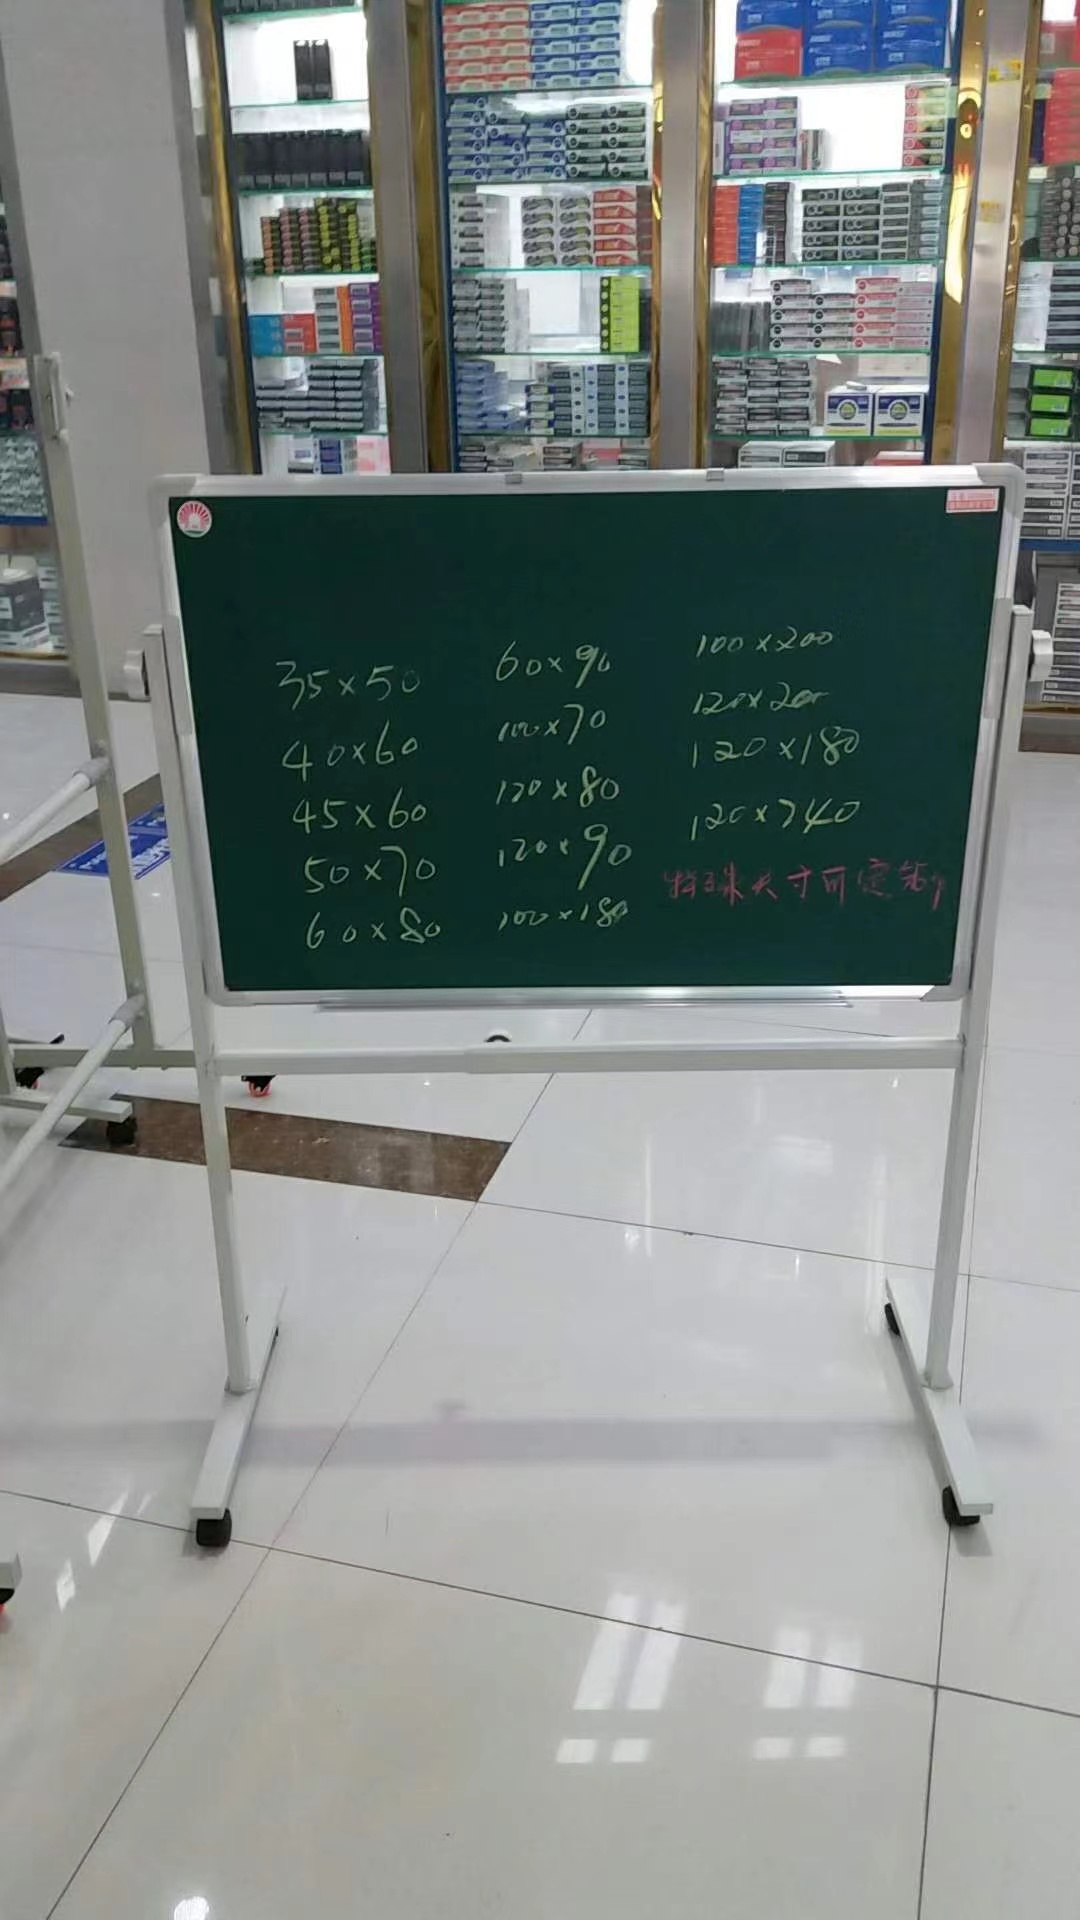 35×50
40×60
45×60
50×70
60×80
60×90
100×70
120×80
120×90
100×180
100×200
120×200
120×180
120×240
特殊尺寸可定制